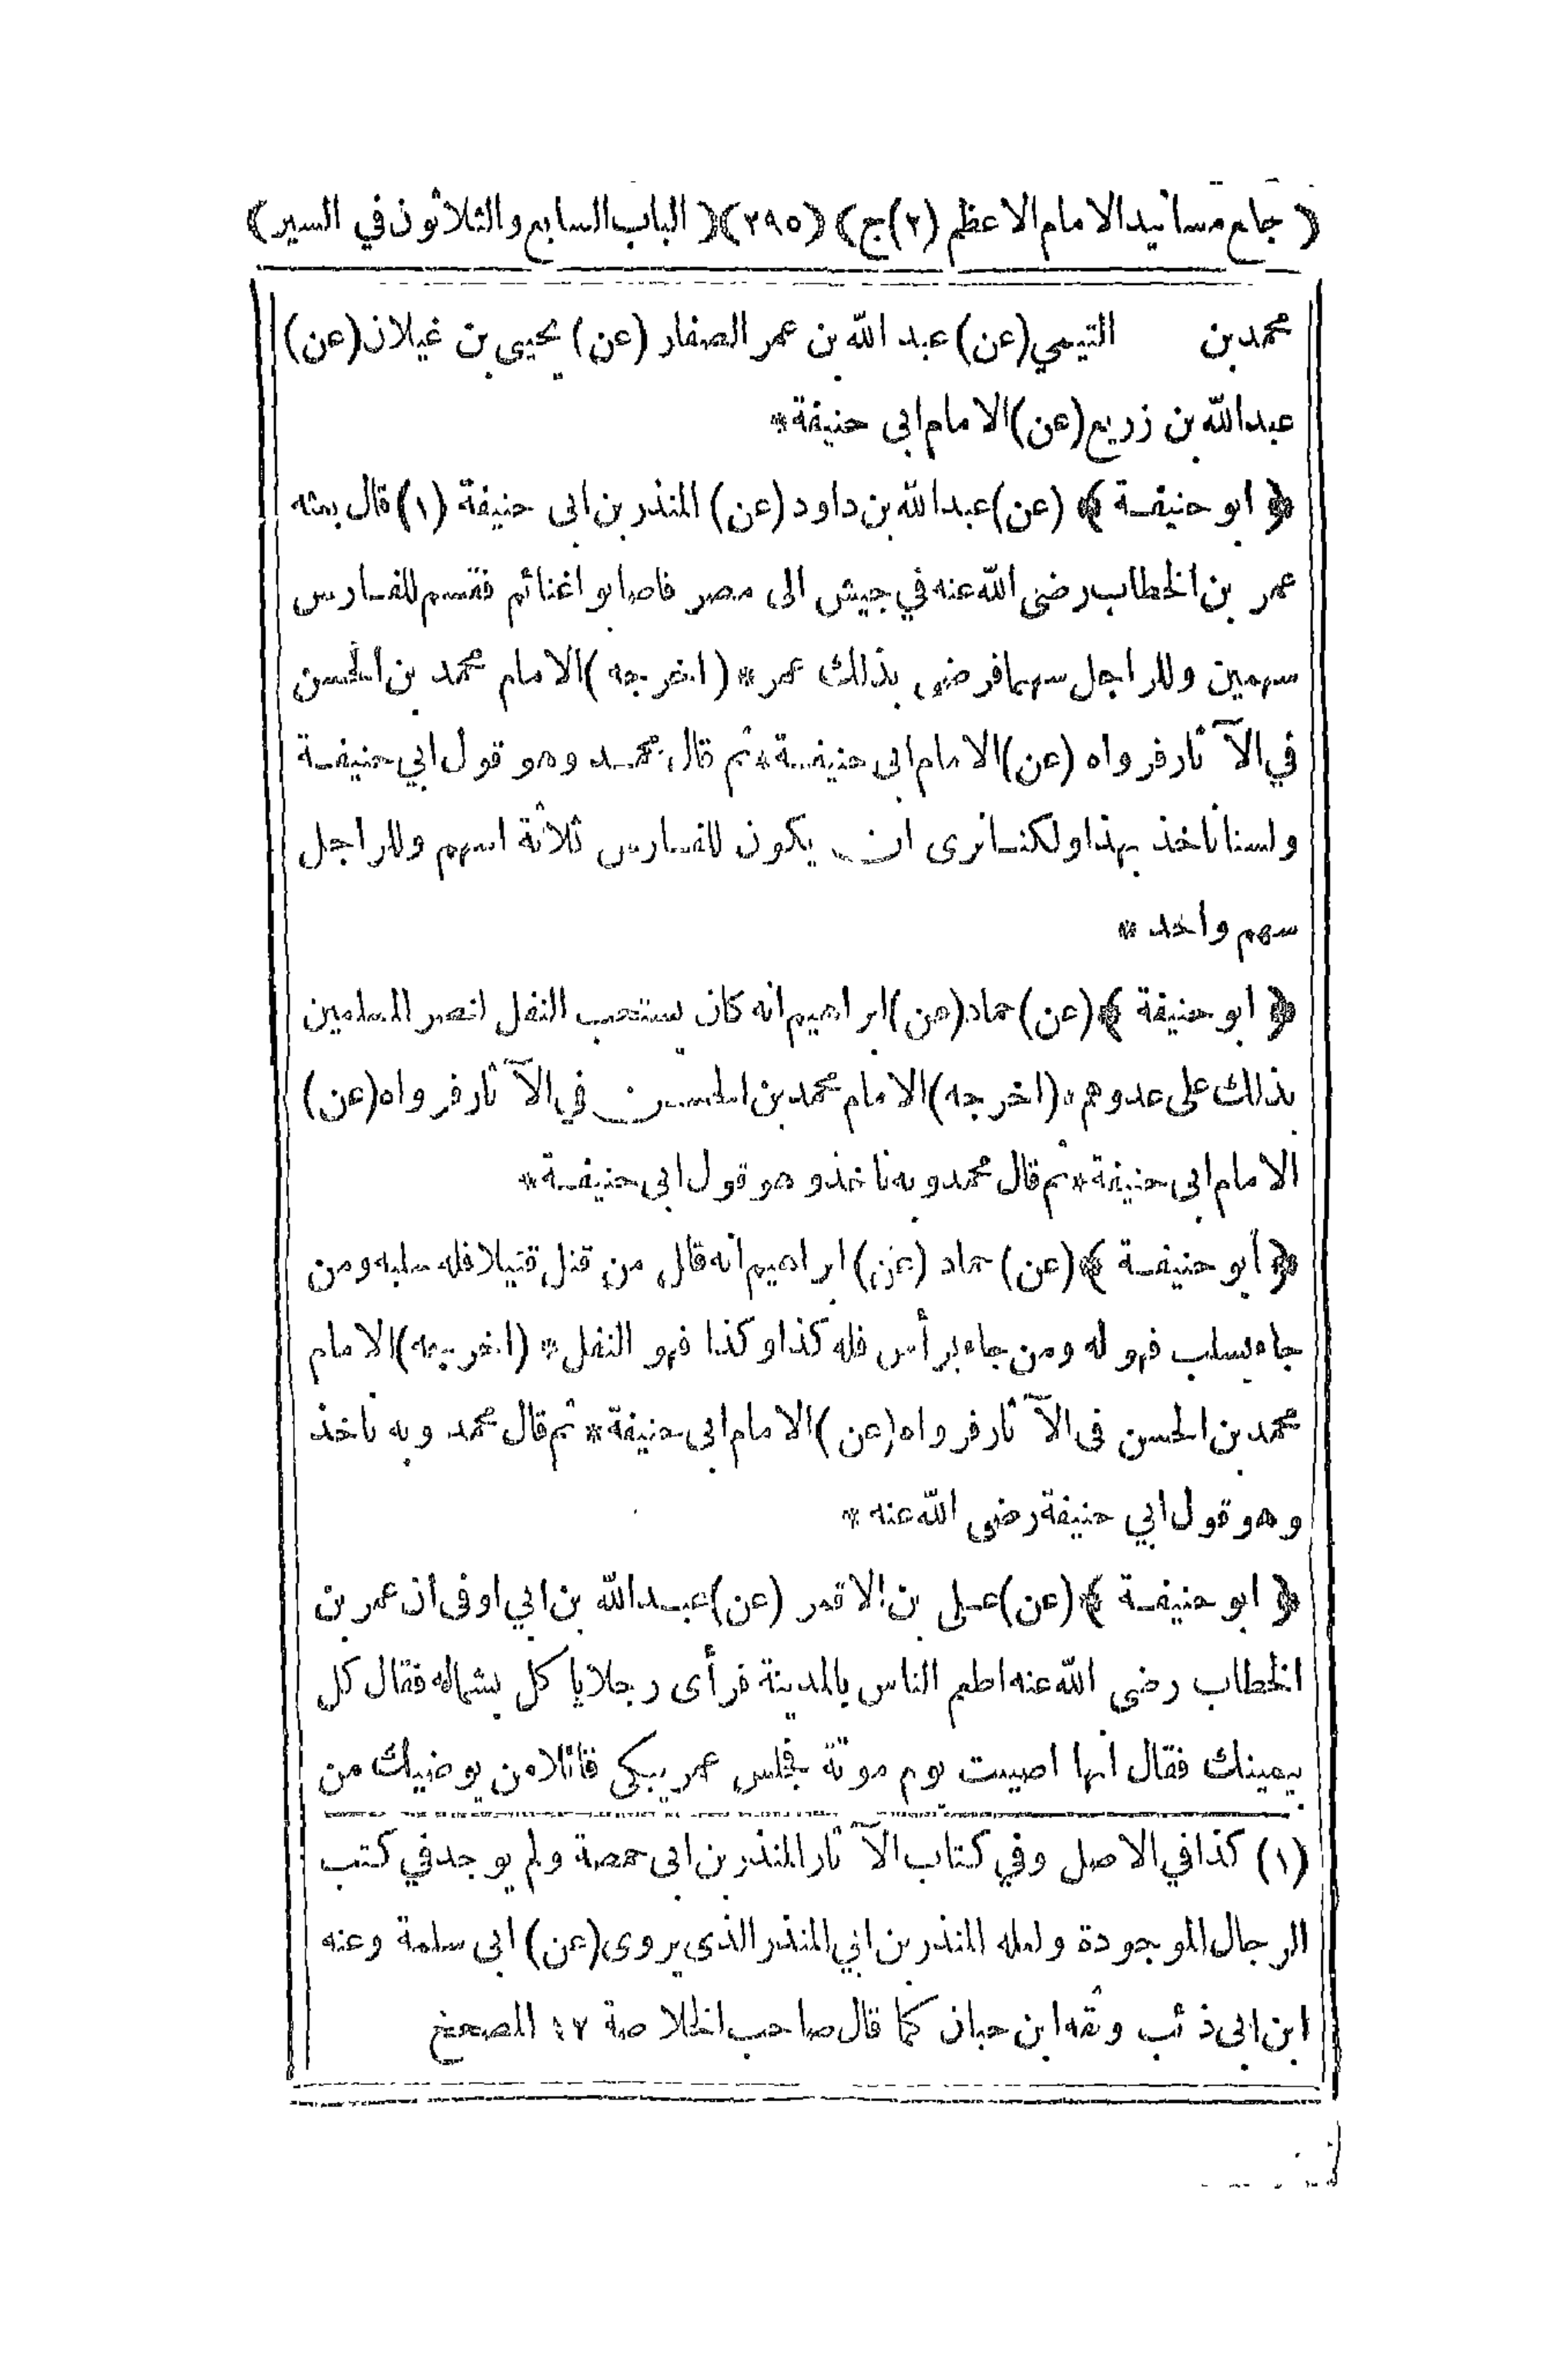 ( جامع مسانيد الامام الاعظم (٢) ج ) ( ٢٩٥ ) ( الباب السابع والثلاثون في السير )
محمد بن التيمي (عن) عبد الله بن عمر الصفار (عن) يحيى بن غيلان (عن)
عبد الله بن زريع (عن) الامام ابى حنيفة *
﴿ ابو حنيفة ﴾ (عن) عبد الله بن داود (عن) المنذر بن ابى حنيفة (١) قال بعثه
عمر بن الخطاب رضى الله عنه في جيش الى مصر فاصابوا غنائم فقسم للفارس
سهمين وللراجل سهما فرضى بذلك عمر * (اخرجه) الامام محمد بن الحسن
في الآثار فرواه (عن) الامام ابى حنيفة * ثم قال محمد وهو قول ابي حنيفة
ولسنا نأخذ بهذا ولكنا نرى ان يكون للفارس ثلاثة اسهم وللراجل
سهم واحد *
﴿ ابو حنيفة ﴾ (عن) حماد (عن) ابراهيم انه كان يستحب النفل لنصر المسلمين
بذلك على عدوهم * (اخرجه) الامام محمد بن الحسن في الآثار فرواه (عن)
الامام ابى حنيفة * ثم قال محمد وبه نأخذ وهو قول ابى حنيفة *
﴿ أبو حنيفة ﴾ (عن) حماد (عن) ابراهيم انه قال من قتل قتيلا فله سلبه ومن
جاء بسلب فهو له ومن جاء برأس فله كذا وكذا فهو النفل * (اخرجه) الامام
محمد بن الحسن فى الآثار فرواه (عن) الامام ابى حنيفة * ثم قال محمد وبه ناخذ
وهو قول ابي حنيفة رضى الله عنه *
﴿ ابو حنيفة ﴾ (عن) علي بن الاقمر (عن) عبد الله بن ابي اوفى ان عمر بن
الخطاب رضى الله عنه اطعم الناس بالمدينة فرأى رجلا ياكل بشماله فقال كل
بيمينك فقال انها اصيبت يوم موتة فجلس عمر يبكى قائلا من يوضيك من
(١) كذا في الاصل وفي كتاب الآثار المنذر بن ابى حمصة ولم يوجد في كتب
الرجال الموجودة ولعله المنذر بن ابي المنذر الذى يروى (عن) ابى سلمة وعنه
ابن ابى ذئب وثقه ابن حبان كما قال صاحب الخلاصة ١٢ المصحح